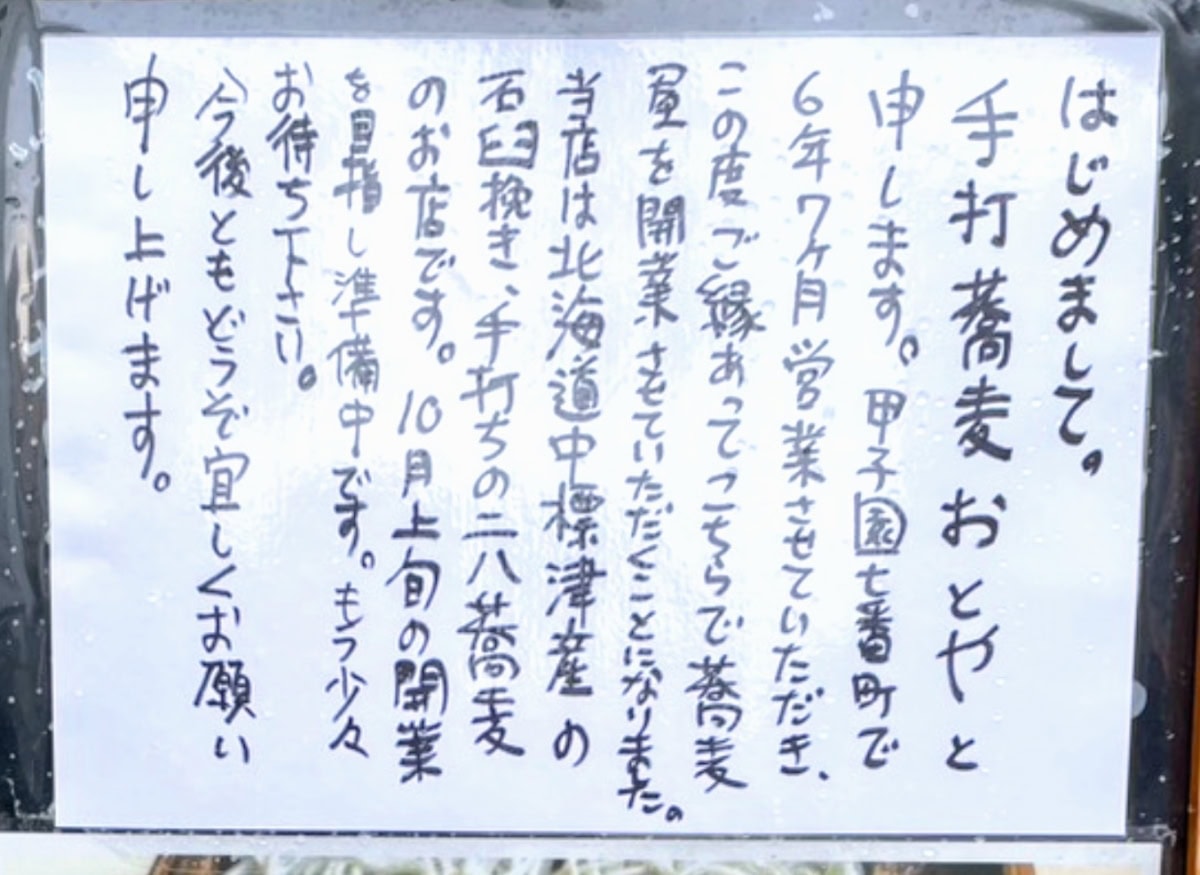 はじめまして。
手打蕎麦おとやと
申します。甲子園七番町で
6年7ヶ月営業させていただき、
この度ご縁あってこちらで蕎麦
屋を開業させていただくことになりました。
当店は北海道中標津産の
石臼挽き、手打ちの二八蕎麦
のお店です。10月上旬の開業
を目指し準備中です。もう少々
お待ち下さい。
今後ともどうぞ宜しくお願い
申し上げます。